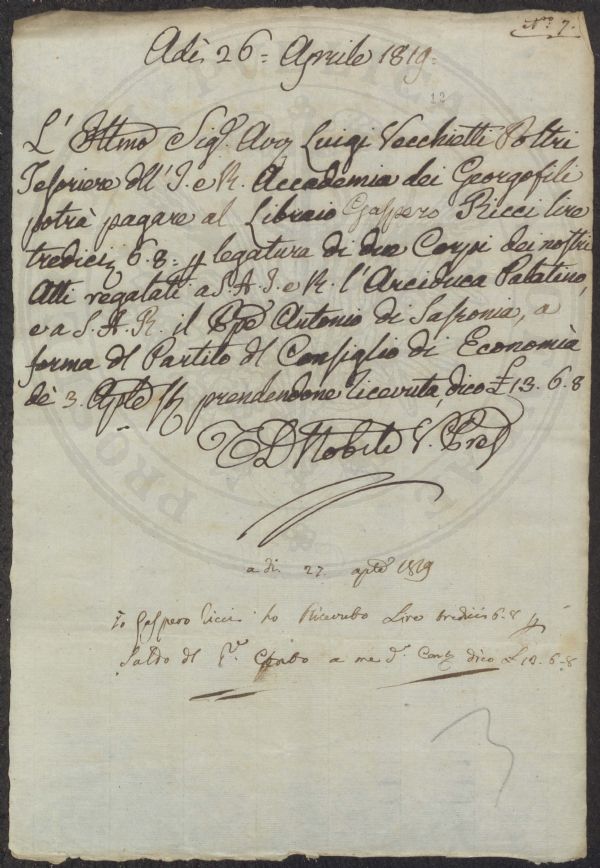 N.° 7.
Adì 26= Aprile 1819=
12
L' Illmo Sig.r Avv Luigi Vecchietti Poltri
Tesoriere dll' I. e R. Accademia dei Georgofili
potrà pagare al Libraio Gaspero Ricci lire
tredici 6.8= p legatura di due Corpi dei nostri
Atti regalati a S. A. I. e R. l'Arciduca Palatino,
e a S. A. R. il Ppe Antonio di Sassonia, a
forma dl Partito dl Consiglio di Economia
de 3. Aple prendendone ricevuta, dico £ 13. 6. 8
T D Nobili V. Pres
a di 27 aple 1819
Io Gaspero Ricci ho Ricevuto Lire tredici 6. 8 p
Saldo del a me dico £ 13. 6- 8